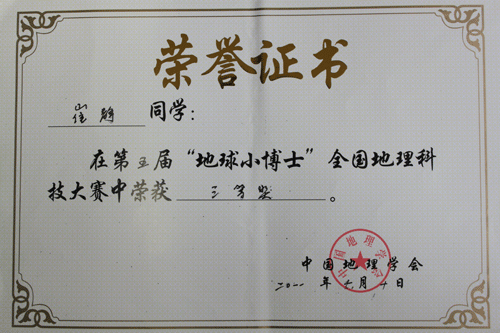 荣誉证书
崔 同学：
在第五届“地球小博士”全国地理科
技大赛中荣获 三等奖 。
中国地理学会
中国地理学会
年 月 日